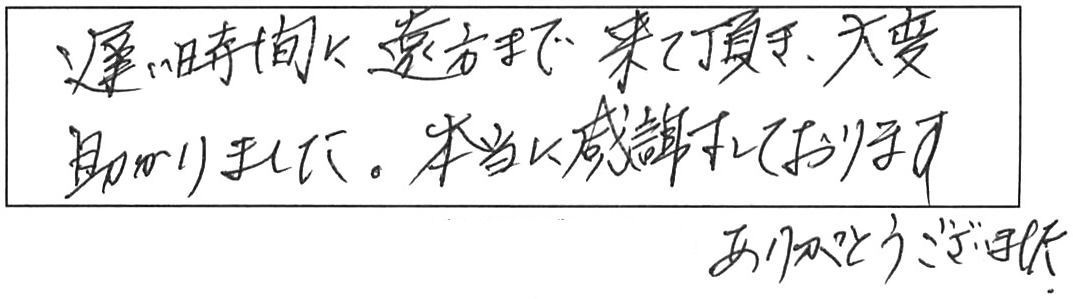 遅い時間に遠方まで来て頂き、大変
助かりました。本当に感謝しております
ありがとうございました.